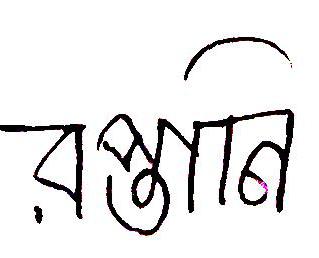 রপ্তানি